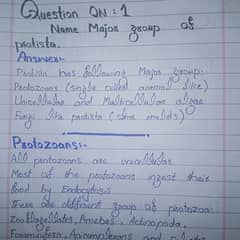 Question ON: 1
Name Major group of
protista.
Answer:-
Protista has following Major group:
Protozoans (single celled animal like)
Unicellular and Multicellular algae
Fungi like protista (slime molds)
Protozoans:-
All protozoans are unicellular
Most of the protozoans ingest their
food by Endocytosis
There are different group of protozoa:
Zooflagellates, Amoebas, Actinopoda,
Foraminifera, Apicomplexans and